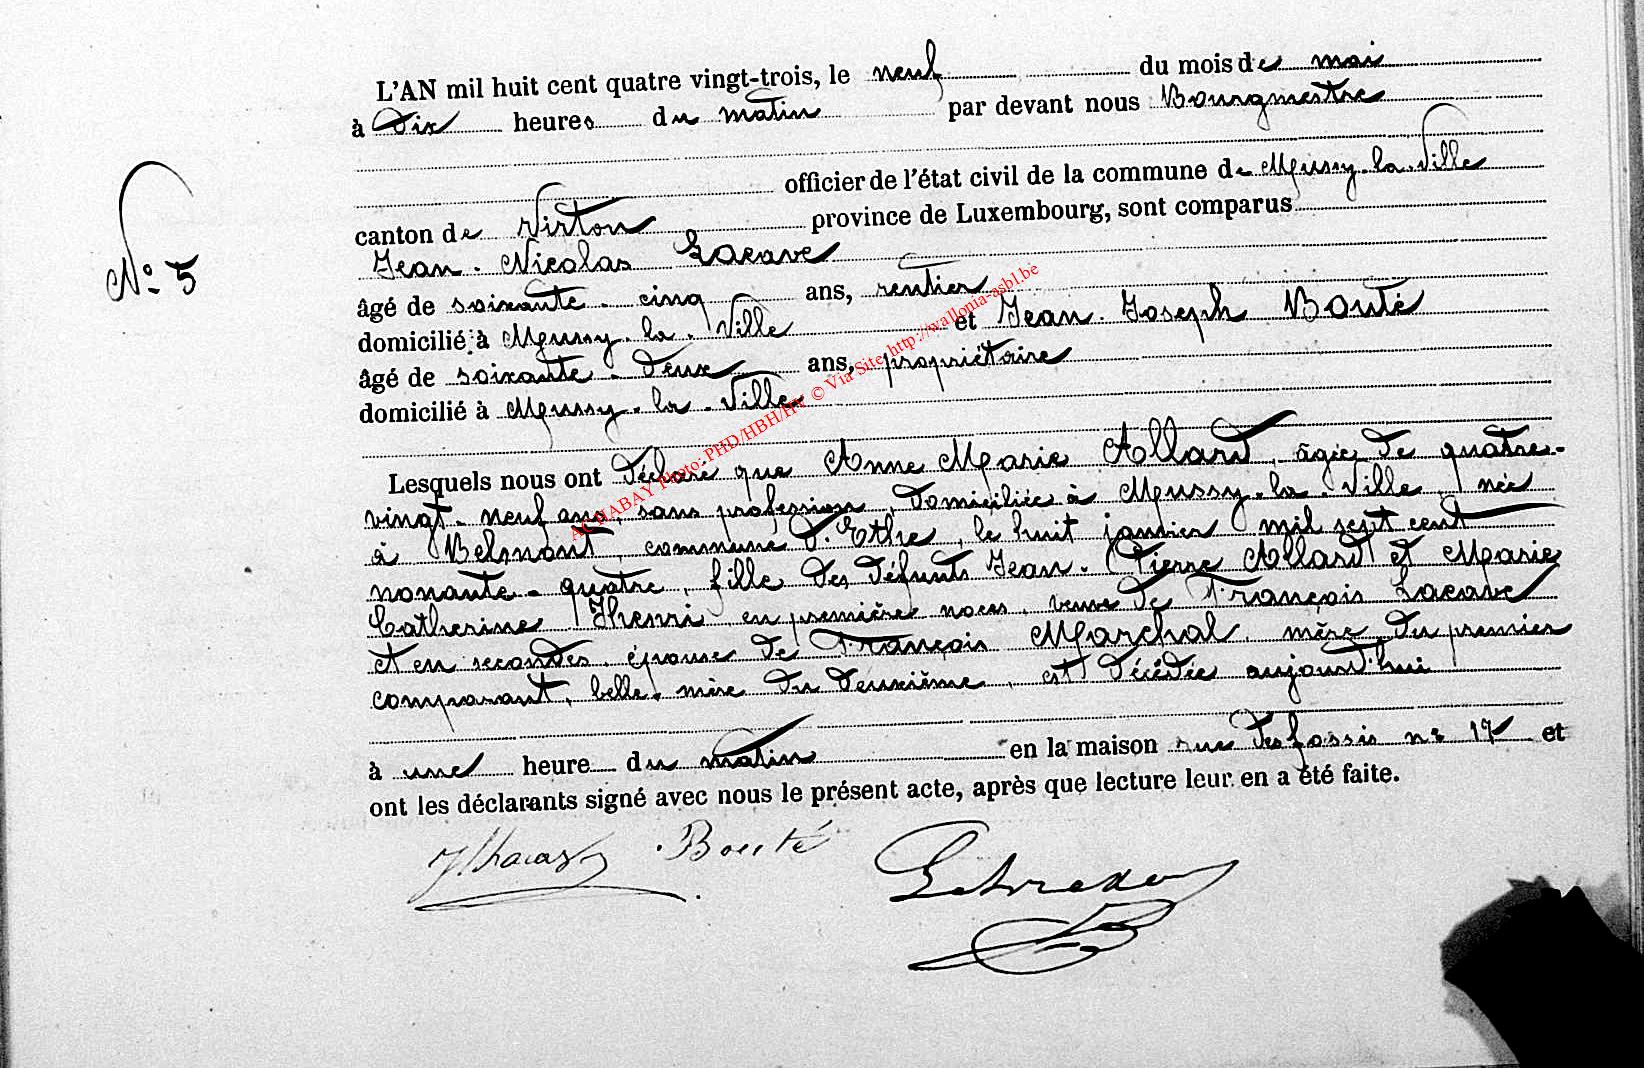 L'AN mil huit cent quatre vingt-trois, le neuf du mois de mai
à dix heures du matin par devant nous Bourgmestre
officier de l'état civil de la commune de Mussy-la-Ville
canton de Virton province de Luxembourg, sont comparus
Jean-Nicolas Lacave
N° 5
âgé de soixante-cinq ans, rentier
domicilié à Mussy-la-Ville et Jean-Joseph Bouté
âgé de soixante-deux ans, propriétaire
domicilié à Mussy-la-Ville
ACHABAY Photo: PHD/HBH/HY © Via Site http://wallonia-asbl.be
Lesquels nous ont déclaré que Anne Marie Allard, âgée de quatre-
vingt-neuf ans, sans profession, domiciliée à Mussy-la-Ville, née
à Belmont, commune d'Ethe, le huit janvier mil sept cent
nonante-quatre, fille des défunts Jean-Pierre Allard et Marie
Catherine Thenri en première noces, veuve de François Lacave
et en secondes, épouse de François Marchal, mère du premier
comparant, belle-mère du deuxième, est décédée aujourd'hui
à une heure du matin en la maison rue des fossés n° 17 et
ont les déclarants signé avec nous le présent acte, après que lecture leur en a été faite.
Bouté